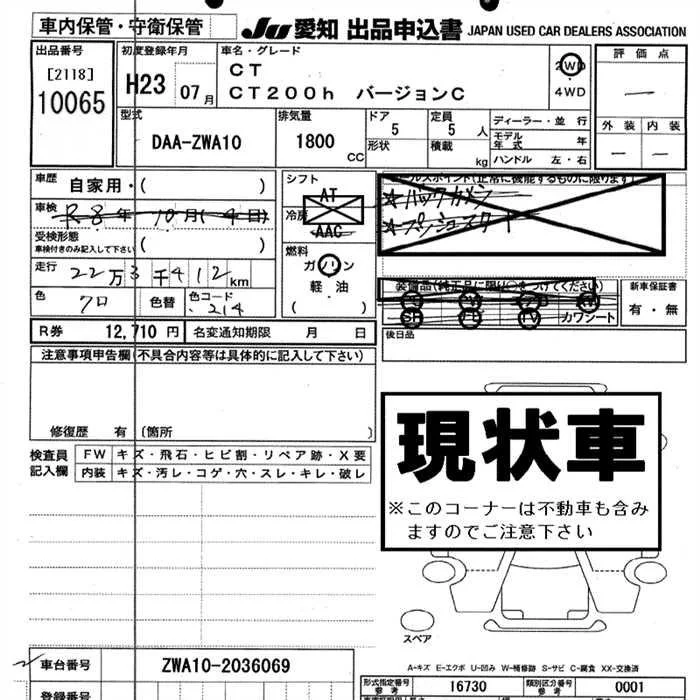 車内保管・守衛保管
JU 愛知 出品申込書 JAPAN USED CAR DEALERS ASSOCIATION
出品番号
[2118]
10065
初度登録年月
H23 07 月
車名・グレード
CT
CT200h バージョンC
2WD
4WD
評価点
—
外装 内装
— —
型式
DAA-ZWA10
排気量
1800 CC
ドア
5
形状
定員
5 人
積載 kg
ディーラー・並行
モデル年式 年
ハンドル 左・右
車歴
自家用・( )
車検
R8年 10月(4日)
受検形態
車検付きのみ記入して下さい ( )
走行
22万3千412km
色
クロ
色替
色コード
214
シフト
AT
冷房
AAC
燃料
ガソリン
軽油
( )
セールスポイント(正常に機能するものに限ります)
☆バックカメラ
☆プッシュスタート
装備品(純正品に限り○をつけてください)
SR
TV
カワシート
新車保証書
有・無
後日品
R券 12,710 円 名変通知期限 月 日
注意事項申告欄(不具合内容等は具体的に記入して下さい)
修復歴 有 〔箇所 〕
検査員記入欄
FW キズ・飛石・ヒビ割・リペア跡・X要
内装 キズ・汚レ・コゲ・穴・スレ・キレ・破レ
現状車
※このコーナーは不動車も含み
ますのでご注意下さい
スペア
A-キズ E-エクボ U-凹み W-補修跡 S-サビ C-腐食 XX-交換済
車台番号 ZWA10-2036069
登録番号
型式指定番号
参考
16730
類別区分番号
参考
0001